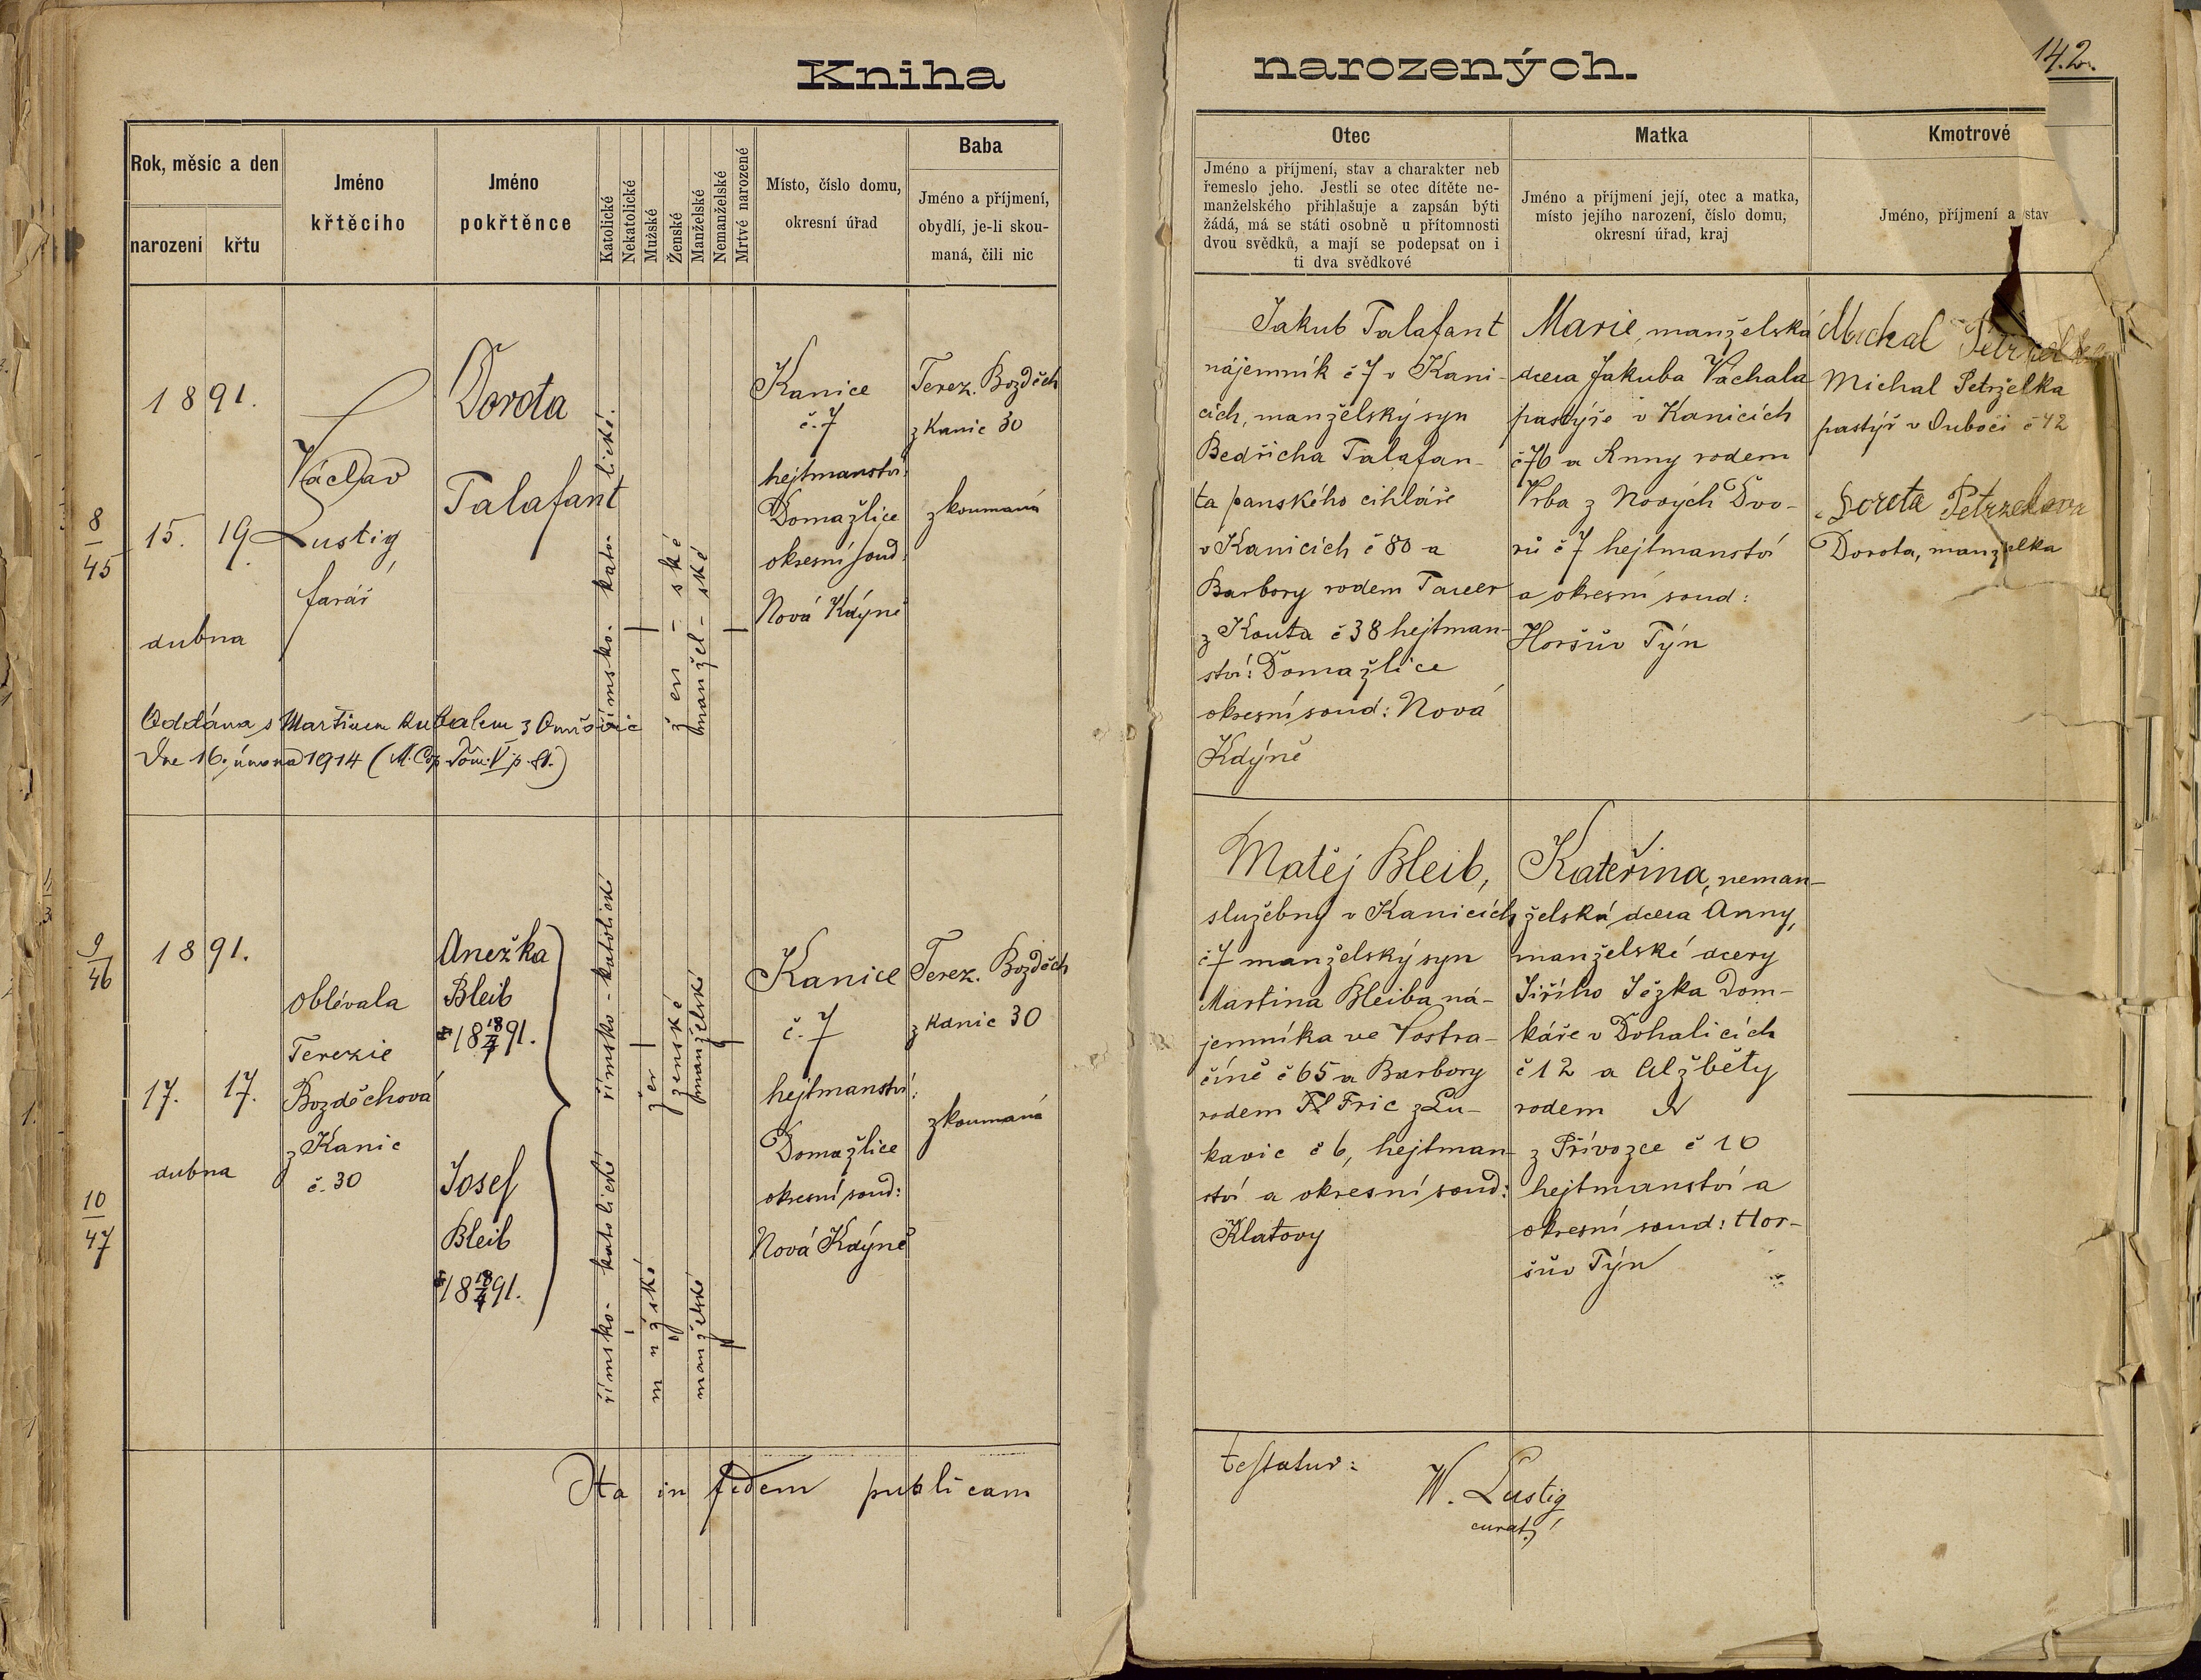 Kniha
narozených.
142.
Rok, měsíc a den
narození
křtu
Jméno
křtěcího
Jméno
pokřtěnce
Katolické
Nekatolické
Mužské
Ženské
Manželské
Nemanželské
Mrtvé narozené
Místo, číslo domu,
okresní úřad
Baba
Jméno a příjmení,
obydlí, je-li skou-
maná, čili nic
Otec
Jméno a příjmení, stav a charakter neb
řemeslo jeho. Jestli se otec dítěte ne-
manželského přihlašuje a zapsán býti
žádá, má se státi osobně u přítomnosti
dvou svědků, a mají se podepsat on i
ti dva svědkové
Matka
Jméno a příjmení její, otec a matka,
místo jejího narození, číslo domu,
okresní úřad, kraj
Kmotrové
Jméno, příjmení a stav
8
45
1891.
15. 19.
dubna
Václav
Lustig,
farář
Dorota
Talafant
římsko-kato-lické.
žen-ské
manžel-ské
Kanice
č. 7
hejtmanství:
Domažlice
okresní soud:
Nová Kdýně
Terez. Bozděch
z Kanic 30
zkoumaná
Jakub Talafant
nájemník č 7 v Kani-
cích, manželský syn
Bedřicha Talafan-
ta panského cihláře
v Kanicích č 80 a
Barbory rodem Tauer
z Kouta č 38 hejtman-
ství: Domažlice
okresní soud: Nová
Kdýně
Marie, manželská
dcera Jakuba Váchala
pastýře v Kanicích
č 76 a Anny rodem
Vrba z Nových Dvo-
rů č 7 hejtmanství
a okresní soud:
Horšův Týn
Michal
Michal Petrželka
pastýř v Úboči č 42
Dorota
Dorota, manželka
Oddána s Martinem
dne 16. února 1914
9
46
10
47
1891.
17. 17.
dubna
oblívala
Terezie
Bozděchová
z Kanic
č. 30
Anežka
Bleib
18 18/4 91.
Josef
Bleib
18 18/4 91.
římsko-katolické
ženské
manželské
římsko-katolické
mužské
manželské
Kanice
č. 7
hejtmanství:
Domažlice
okresní soud:
Nová Kdýně
Terez. Bozděch
z Kanic 30
zkoumaná
Matěj Bleib,
služebný v Kanicích
č 7 manželský syn
Martina Bleiba ná-
jemníka ve Vostra-
číně č 65 a Barbory
rodem Fric z Lu-
kavic č 6, hejtman-
ství a okresní soud:
Klatovy
Kateřina, neman-
želská dcera Anny,
manželské dcery
Jiřího Ježka dom-
káře v Dohalicích
č 12 a Alžběty
rodem N
z Přívozce č 10
hejtmanství a
okresní soud: Hor-
šův Týn
Ita in fidem publicam
testatur:
W. Lustig
curat.